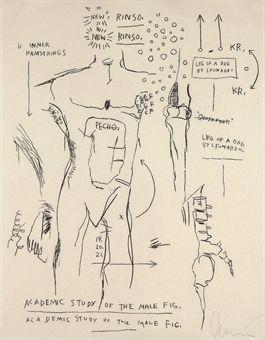 "NEW" RINSO.
"NEW" RINSO.
INNER
HAMSTRINGS
KR,
LEG OF A DOG
BY LEONARDO.
KR,
LEG OF A DOG
BY LEONARDO.
PECHO,
X
19.
20.
21.
ACADEMIC STUDY OF THE MALE FIG.
ACADEMIC STUDY OF THE MALE FIG.